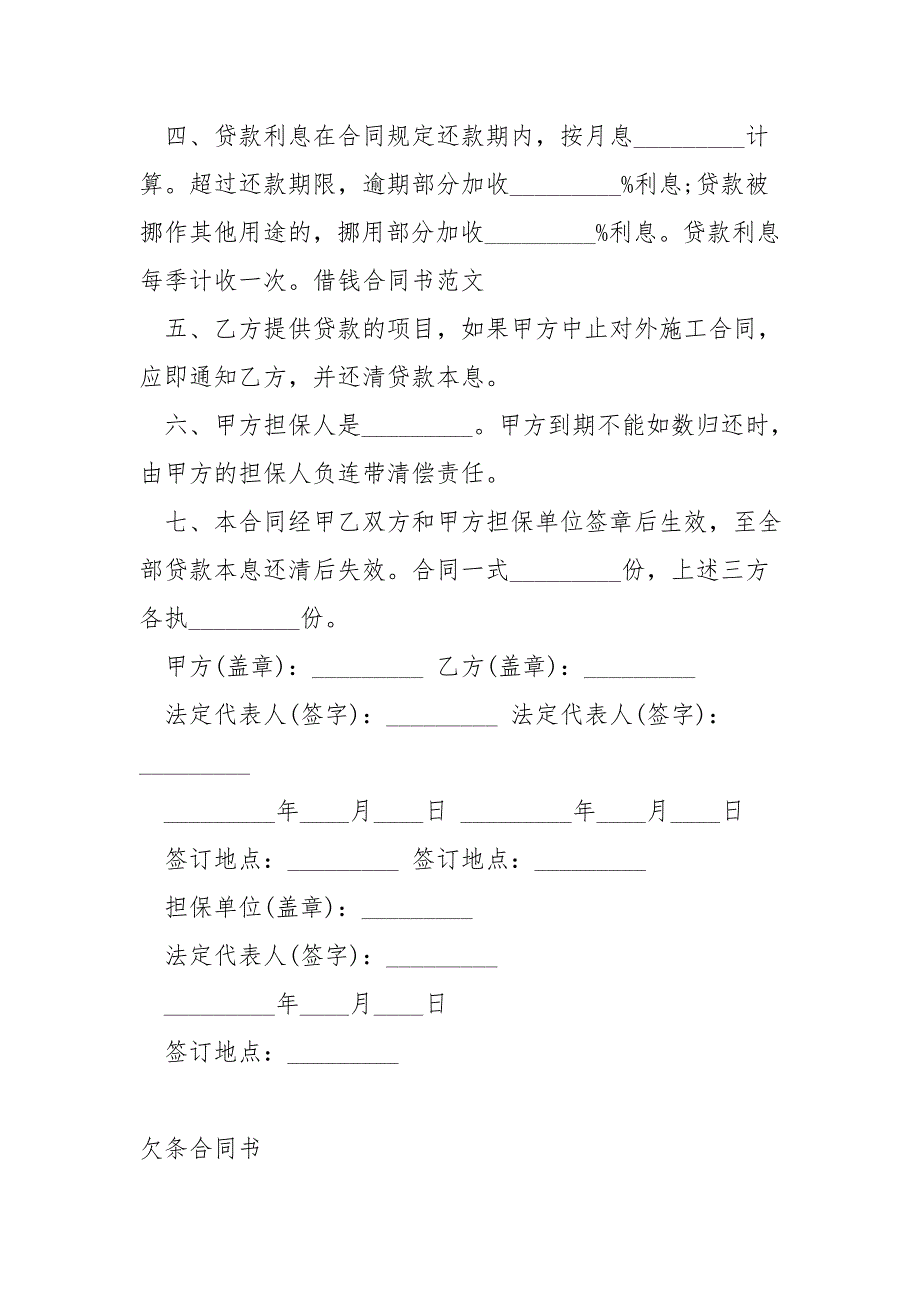 四、贷款利息在合同规定还款期内，按月息_________计
算。超过还款期限，逾期部分加收_________%利息;贷款被
挪作其他用途的，挪用部分加收_________%利息。贷款利息
每季计收一次。借钱合同书范文
五、乙方提供贷款的项目，如果甲方中止对外施工合同，
应即通知乙方，并还清贷款本息。
六、甲方担保人是_________。甲方到期不能如数归还时，
由甲方的担保人负连带清偿责任。
七、本合同经甲乙双方和甲方担保单位签章后生效，至全
部贷款本息还清后失效。合同一式_________份，上述三方
各执_________份。
甲方(盖章)：_________ 乙方(盖章)：_________
法定代表人(签字)：_________ 法定代表人(签字)：
_________
_________年____月____日 _________年____月____日
签订地点：_________ 签订地点：_________
担保单位(盖章)：_________
法定代表人(签字)：_________
_________年____月____日
签订地点：_________
欠条合同书